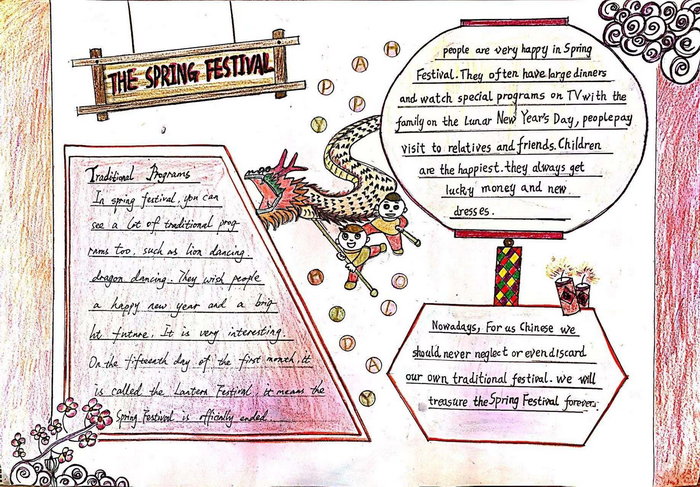 THE SPRING FESTIVAL
HAPPY
people are very happy in Spring
Festival. They often have large dinners
and watch special programs on TV with the
family on the Lunar New Year's Day, people pay
visit to relatives and friends. Children
are the happiest. they always get
lucky money and new
dresses.
Traditional Programs
In spring festival, you can
see a lot of traditional prog
rams too, such as lion dancing.
dragon dancing. They wish people
a happy new year and a brig
ht future. It is very interesting.
On the fifteenth day of the first month, it
is called the Lantern Festival, it means the
Spring Festival is officially ended.
HOLIDAY
Nowadays, For us Chinese we
should never neglect or even discard
our own traditional festival. we will
treasure the Spring Festival forever.